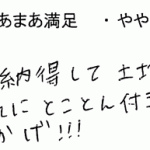 あまあ満足 ・やや
納得して土地
れにとことん付き
かげ!!!